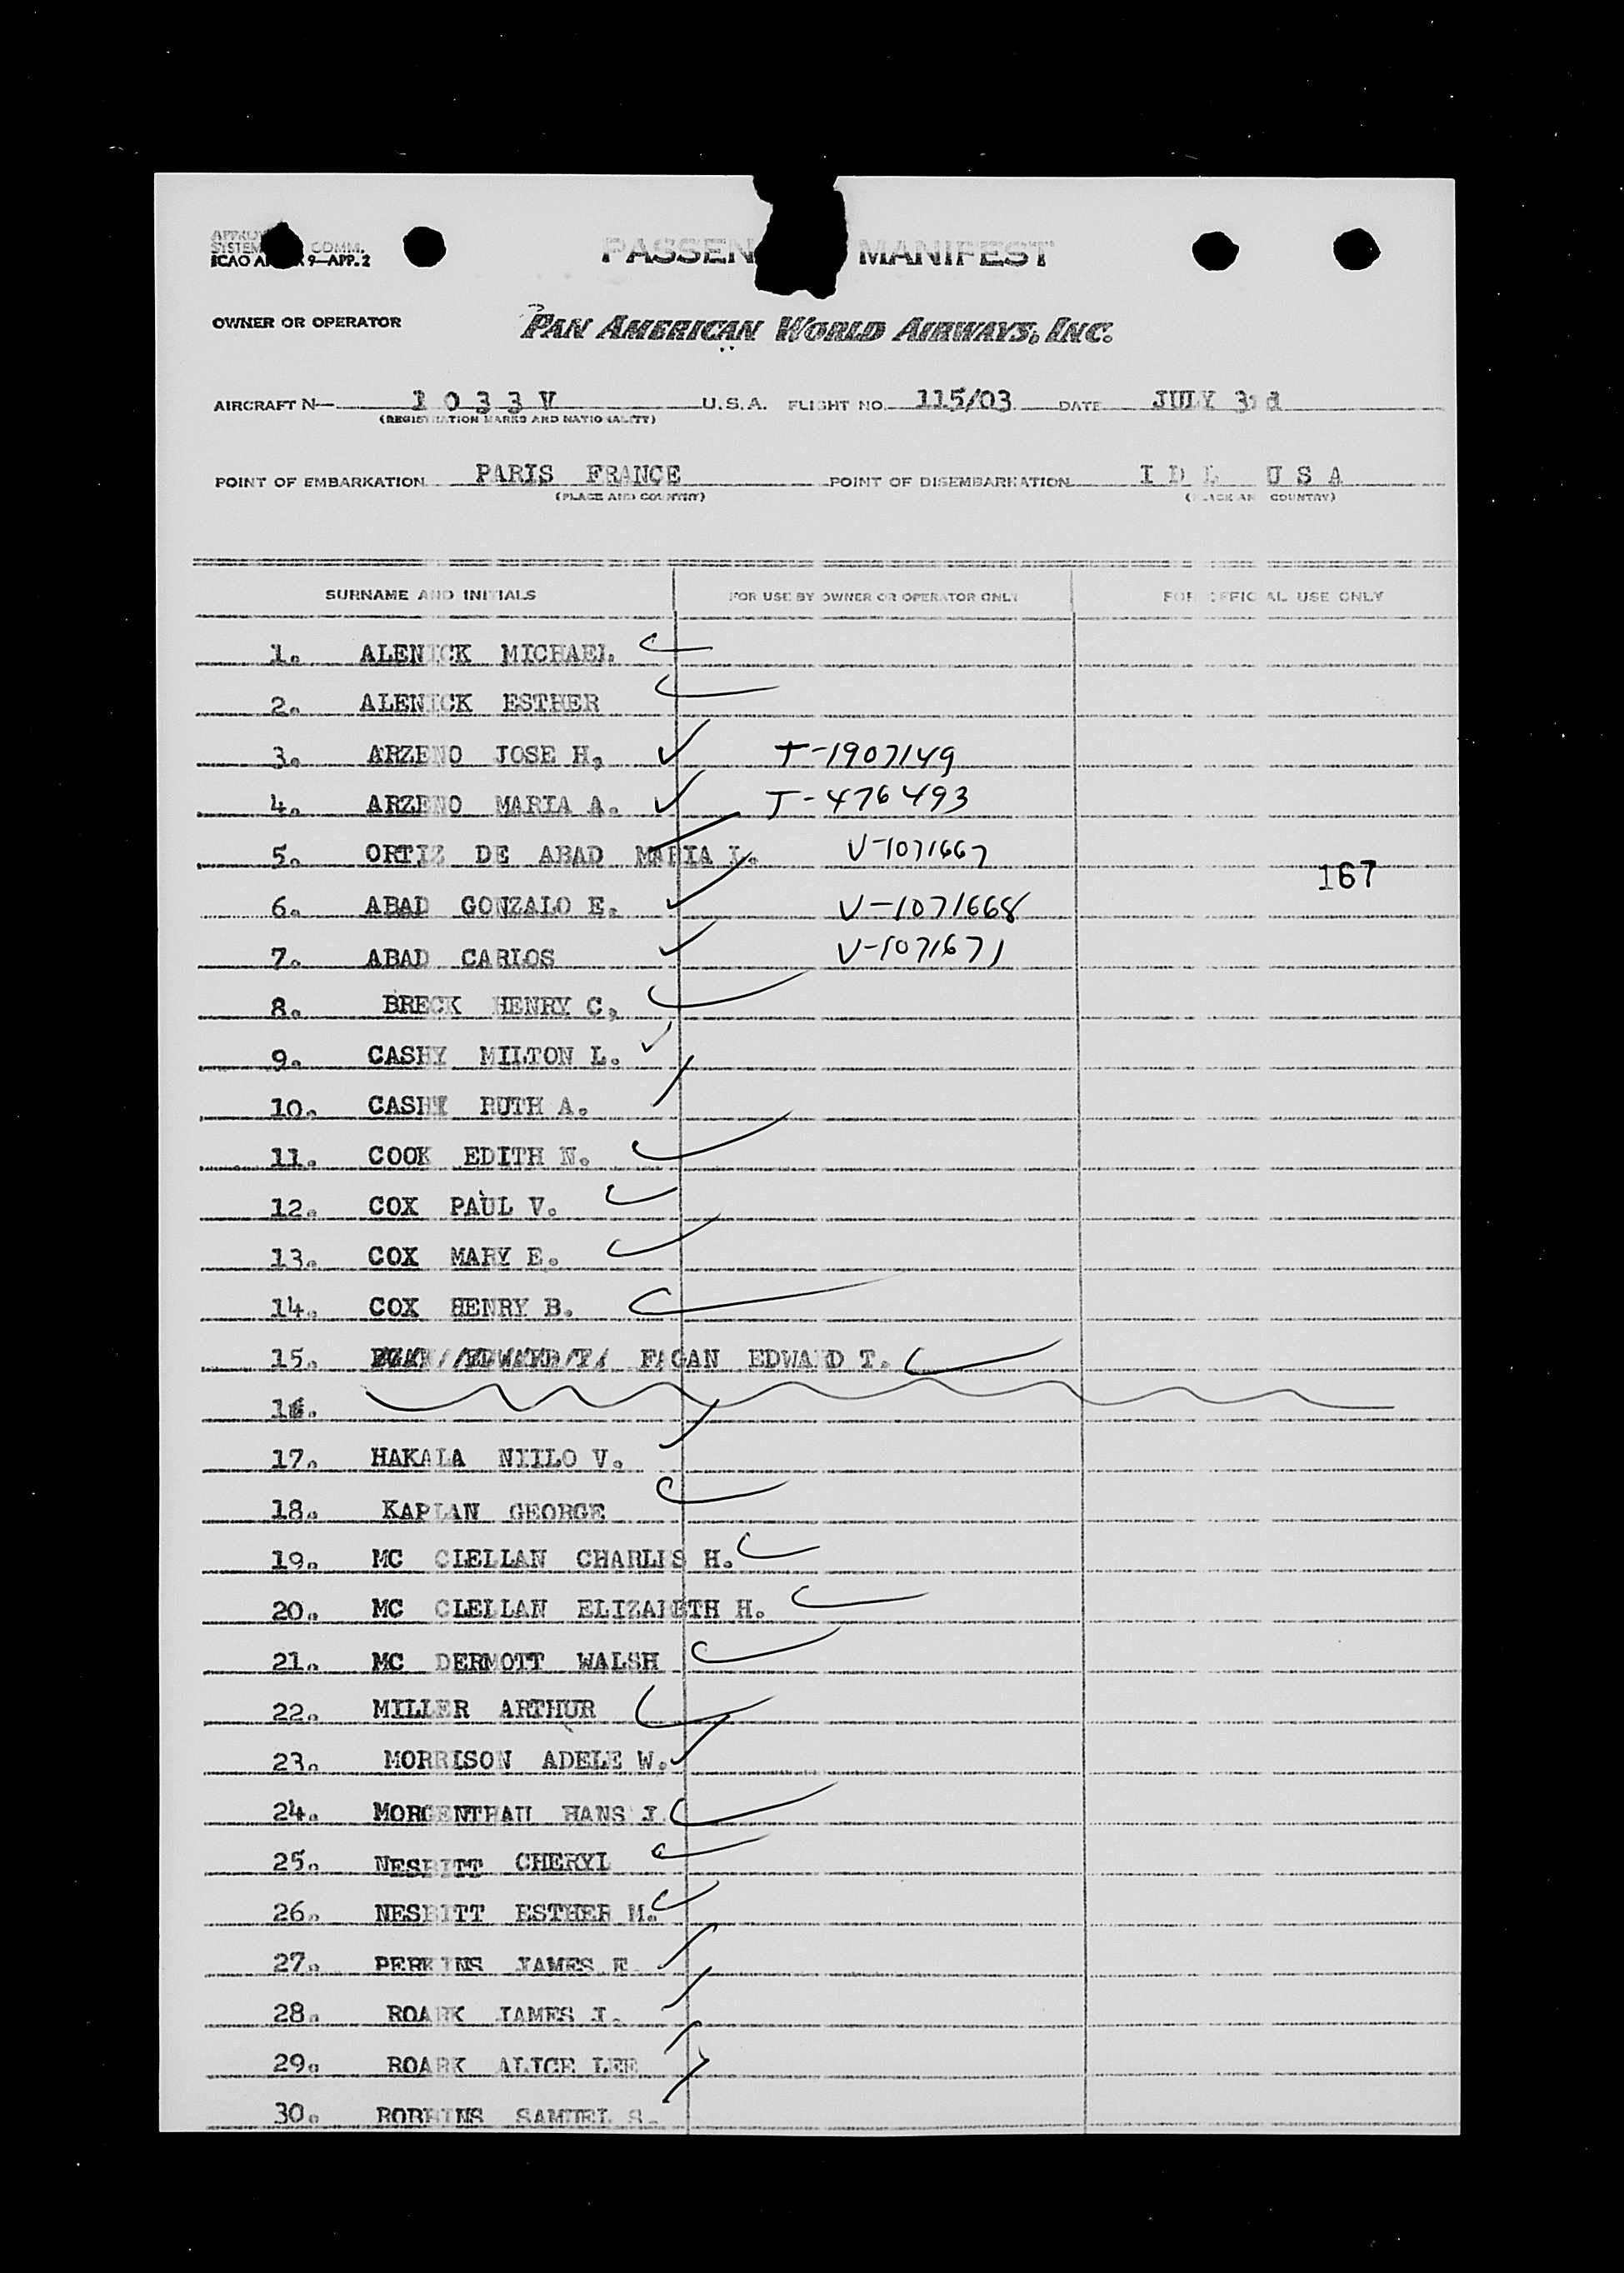 ICAO A 9—APP. 2
COMM.
PASSEN MANIFEST
OWNER OR OPERATOR PAN AMERICAN WORLD AIRWAYS, INC.
AIRCRAFT N— 1 0 3 3 V U.S.A. FLIGHT NO. 115/03 DATE JULY 3rd
(REGISTRATION MARKS AND NATIONALITY)
POINT OF EMBARKATION PARIS FRANCE POINT OF DISEMBARKATION I D L U S A
(PLACE AND COUNTRY) (PLACE AND COUNTRY)
SURNAME AND INITIALS FOR USE BY OWNER OR OPERATOR ONLY FOR OFFICIAL USE ONLY
1. ALENICK MICHAEL
2. ALENICK ESTHER
3. ARZENO JOSE H, T-1907149
4. ARZENO MARIA A. T-476493
5. ORTIZ DE ABAD MARIA L. V-1071667
167
6. ABAD GONZALO E. V-1071668
7. ABAD CARLOS V-1071671
8. BRECK HENRY C,
9. CASHY MILTON L.
10. CASHY RUTH A.
11. COOK EDITH N.
12. COX PAUL V.
13. COX MARY E.
14. COX HENRY B.
15. FAGAN EDWARD T.
16.
17. HAKALA NIILO V.
18. KAPLAN GEORGE
19. MC CLELLAN CHARLES H.
20. MC CLELLAN ELIZABETH H.
21. MC DERMOTT WALSH
22. MILLER ARTHUR
23. MORRISON ADELE W.
24. MORGENTHAU HANS J.
25. NESBITT CHERYL
26. NESBITT ESTHER M.
27. PERKINS JAMES E
28. ROARK JAMES J.
29. ROARK ALICE LEE
30. ROBBINS SAMUEL S.